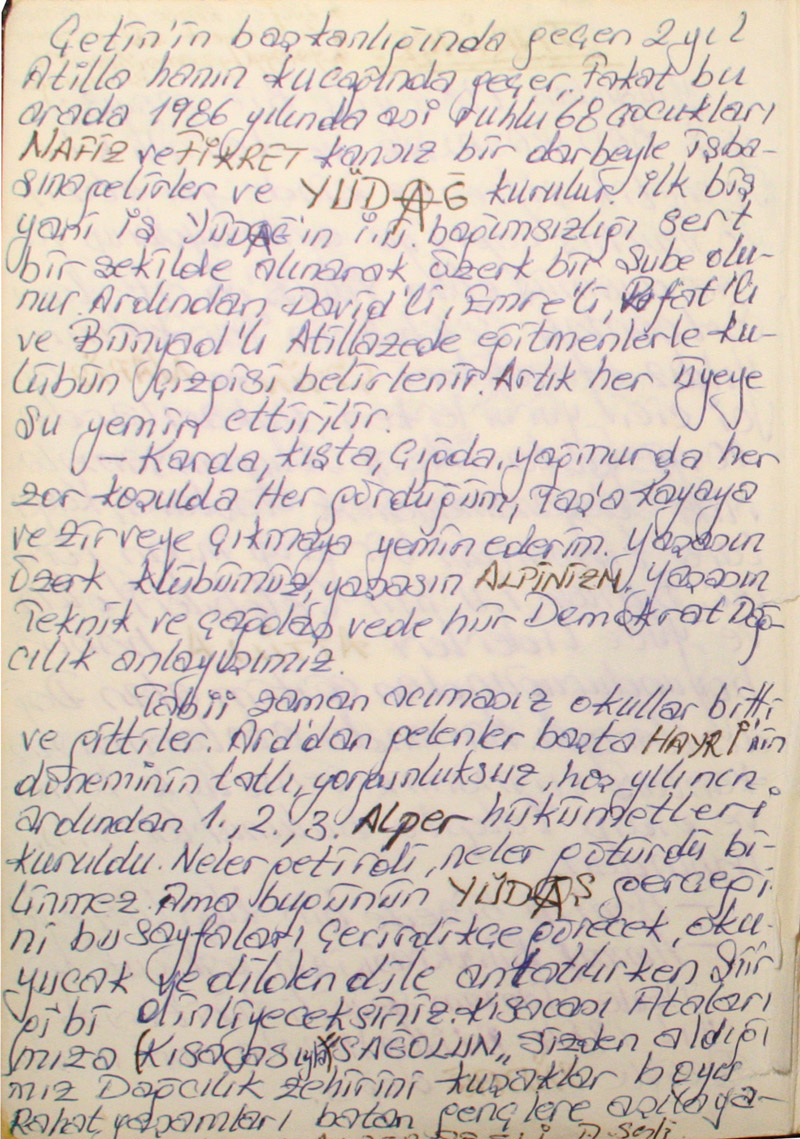 Çetin'in başkanlığında geçen 2 yıl
Atilla hanın kucağında geçer.. Fakat bu
arada 1986 yılında asi ruhlu 68 çocukları
NAFİZ ve FİKRET kansız bir darbeyle işba-
şına gelirler ve YÜDAĞ kurulur. İlk biş
yani iş YÜDAĞ'ın İ.Ü. bağımsızlığı sert
bir şekilde alınarak özerk bir şube olu-
nur. Ardından David'li, Emre'li, Refat'lı
ve Bünyad'lı Atillazede eğitmenlerle ku-
lübün çizgisi belirlenir. Artık her üyeye
şu yemin ettirilir.
— Karda, kışta, çığda, yağmurda her
zor koşulda Her gördüğüm, Taş'a Kayaya
ve zirveye çıkmaya yemin ederim. Yaşasın
özerk klübümüz, yaşasın ALPİNİZM, yaşasın
Teknik ve çağdaş vede hür Demokrat Dağ-
cılık anlayışımız.
Tabii zaman acımasız okullar bitti
ve gittiler. Ard'dan gelenler başta HAYRİ'nin
döneminin tatlı, yorgunluksuz, hoş yılının
ardından 1., 2., 3. Alper hükümetleri
kuruldu. Neler getirdi, neler götürdü bi-
linmez. Ama bugünün YÜDAŞ gerçeği
ni bu sayfaları çevirdikçe görecek, oku-
yucak ve dilden dile anlatılırken Şiir
gibi dinliyeceksiniz. Kısacası Ataları
mıza (Kısacası "SAĞOLUN,, sizden aldığı
mız Dağcılık zehirini kuşaklar boyu
Rahat yaşamları batan gençlere aşılaya-